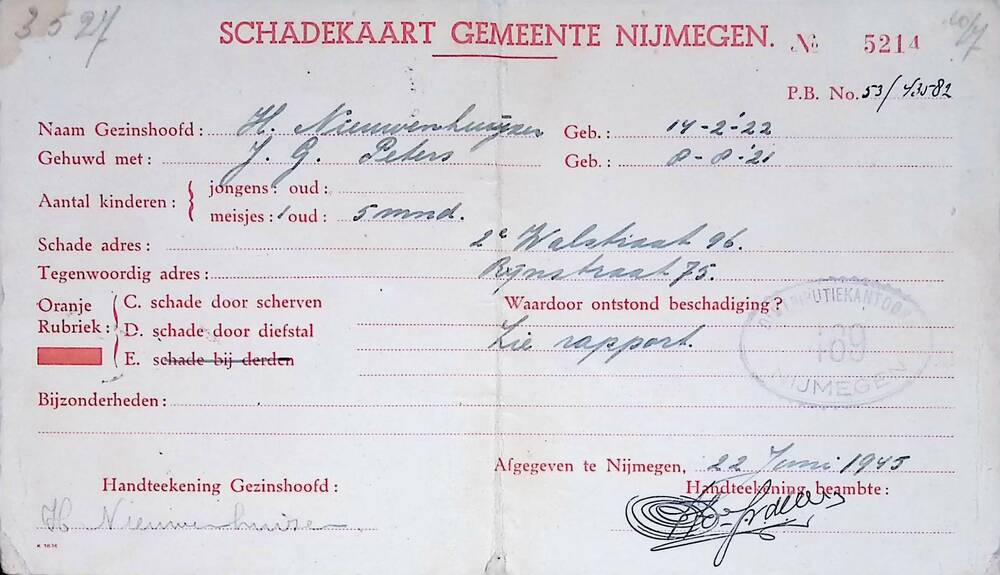 3527
SCHADEKAART GEMEENTE NIJMEGEN. № 5214
P.B. No. 53/43082
Naam Gezinshoofd: H. Nieuwenhuijzen Geb.: 14-2-'22
Gehuwd met: J. G. Peters Geb.: 8-8-'21
Aantal kinderen: { jongens: oud:
meisjes: 1 oud: 5 mnd.
Schade adres: 2e Walstraat 96.
Tegenwoordig adres: Rijnstraat 75.
Oranje Rubriek: C. schade door scherven Waardoor ontstond beschadiging?
D. schade door diefstal Zie rapport.
E. schade bij derden
DISTRIBUTIEKANTOOR
189
NIJMEGEN
Bijzonderheden:
Afgegeven te Nijmegen, 22 Juni 1945
Handteekening Gezinshoofd: Handteekening beambte:
H Nieuwenhuizen
K 1616